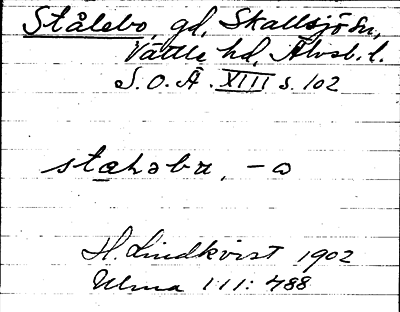 Stålebo, gd, Skallsjö sn,
Vättle hd, Älvsb. l.
S.O.Ä. XIII s. 102
stæləbu, -o
H. Lindkvist 1902
Ulma 111: 488